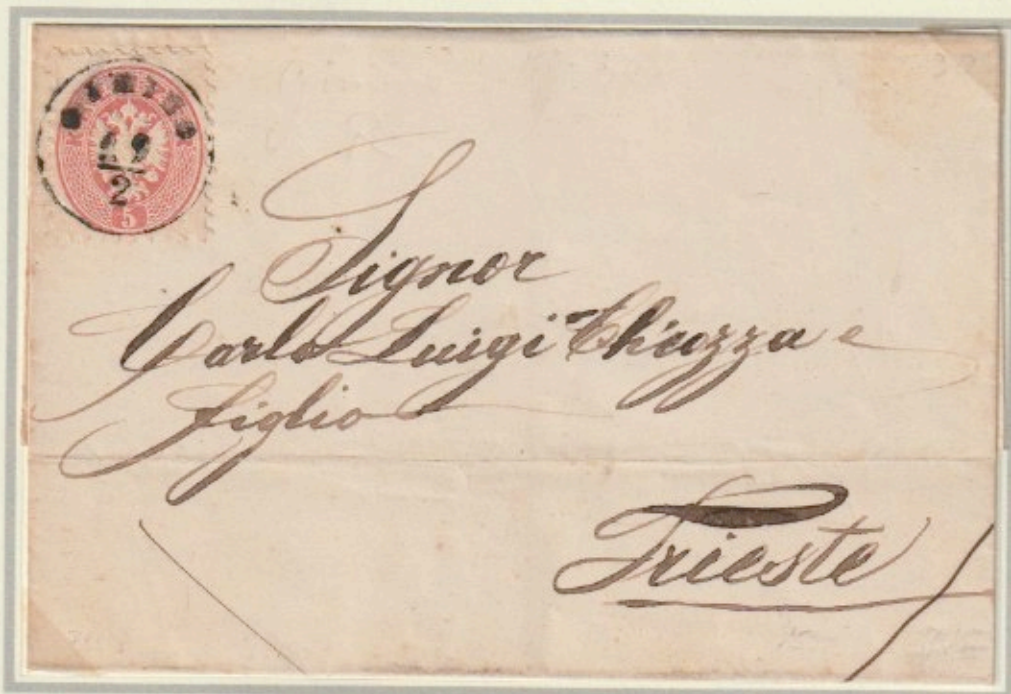 19
2
5
Signor
Carlo Luigi Chiozza e
figlio
Trieste